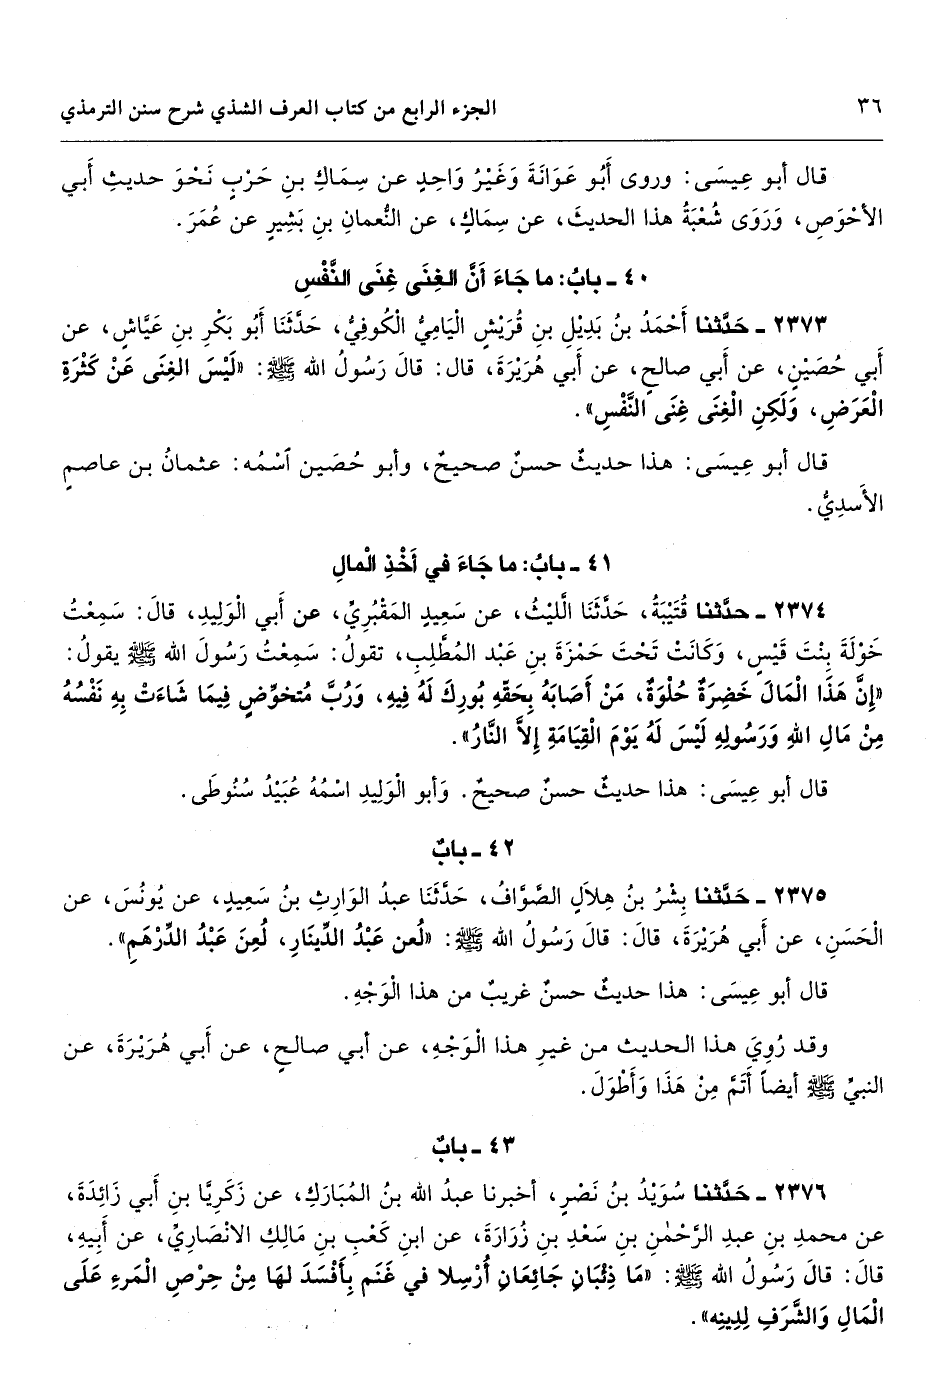 ٣٦ الجزء الرابع من كتاب العرف الشذي شرح سنن الترمذي
قال أبو عِيسَى: وروى أَبُو عَوَانَةَ وَغَيْرُ وَاحِدٍ عن سِمَاكِ بنِ حَرْبٍ نَحْوَ حديثِ أبي
الأَحْوَصِ، وَرَوَى شُعْبَةُ هذا الحديثَ، عن سِمَاكٍ، عن النُّعمانِ بنِ بَشِيرٍ عن عُمَرَ.
٤٠ ـ بابُ: ما جَاءَ أَنَّ الغِنَى غِنَى النَّفْسِ
٢٣٧٣ ـ حَدَّثنا أَحْمَدُ بنُ بَدِيْلِ بنِ قُرَيْشٍ الْيَامِيُّ الْكُوفِيُّ، حَدَّثَنَا أَبُو بَكْرِ بنِ عَيَّاشٍ، عن
أَبِي حُصَيْنٍ، عن أَبِي صالحٍ، عن أبي هُرَيْرَةَ، قال: قالَ رَسُولُ الله ﷺ: «لَيْسَ الغِنَى عَنْ كَثْرَةِ
الْعَرَضِ، وَلَكِنِ الْغِنَى غِنَى النَّفْسِ».
قال أبو عِيسَى: هذا حديثٌ حسنٌ صحيحٌ، وأبو حُصَين ٱسْمُه: عثمانُ بن عاصمٍ
الأَسدِيُّ.
٤١ ـ بابُ: ما جَاءَ في أَخْذِ الْمالِ
٢٣٧٤ ـ حدَّثنا قُتَيْبَةُ، حَدَّثَنَا الَّليْثُ، عن سَعِيدٍ المَقْبُرِيِّ، عن أَبي الْوَلِيدِ، قالَ: سَمِعْتُ
خَوْلَةَ بِنْتَ قَيْسٍ، وَكَانَتْ تَحْتَ حَمْزَةَ بنِ عَبْد المُطَّلِبِ، تقولُ: سَمِعْتُ رَسُولَ الله ﷺ يقولُ:
«إِنَّ هَذَا الْمَالَ خَضِرَةٌ حُلْوَةٌ، مَنْ أَصَابَهُ بِحَقِّهِ بُورِكَ لَهُ فِيهِ، وَرُبَّ مُتخوِّضٍ فِيمَا شَاءَتْ بِهِ نَفْسُهُ
مِنْ مَالِ اللهِ وَرَسُولِهِ لَيْسَ لَهُ يَوْمَ الْقِيَامَةِ إِلاَّ النَّارُ».
قال أبو عِيسَى: هذا حديثٌ حسنٌ صحيحٌ. وَأبو الْوَلِيدِ اسْمُهُ عُبَيْدُ سُنُوطَى.
٤٢ ـ بابٌ
٢٣٧٥ ـ حَدَّثنا بِشْرُ بنُ هِلاَلٍ الصَّوَّافُ، حَدَّثَنَا عبدُ الوَارِثِ بنُ سَعِيدٍ، عن يُونُسَ، عن
الْحَسَنِ، عن أَبي هُرَيْرَةَ، قالَ: قالَ رَسُولُ الله ﷺ: «لُعن عَبْدُ الدِّينَارِ، لُعِنَ عَبْدُ الدِّرْهَمِ».
قال أبو عِيسَى: هذا حديثٌ حسنٌ غريبٌ من هذا الْوَجْهِ.
وقد رُوِيَ هذا الحديث من غيرِ هذا الْوَجْهِ، عن أبي صالحٍ، عن أَبي هُرَيْرَةَ، عن
النبيِّ ﷺ أيضاً أَتَمَّ مِنْ هَذَا وَأَطْوَلَ.
٤٣ ـ بابٌ
٢٣٧٦ ـ حَدَّثنا سُوَيْدُ بنُ نَصْرٍ، أخبرنا عبدُ الله بنُ المُبَارَكِ، عن زَكَرِيَّا بنِ أَبي زَائِدَةَ،
عن محمدِ بنِ عبدِ الرَّحْمٰنِ بنِ سَعْدِ بنِ زُرَارَةَ، عن ابنِ كَعْبِ بنِ مَالِكٍ الانْصَارِيِّ، عن أَبِيهِ،
قالَ: قالَ رَسُولُ الله ﷺ: «مَا ذِئْبَانِ جَائِعَانِ أُرْسِلا في غَنَمٍ بِأَفْسَدَ لهَا مِنْ حِرْصِ الْمَرءِ عَلَى
الْمَالِ وَالشَّرَفِ لِدِينِه».